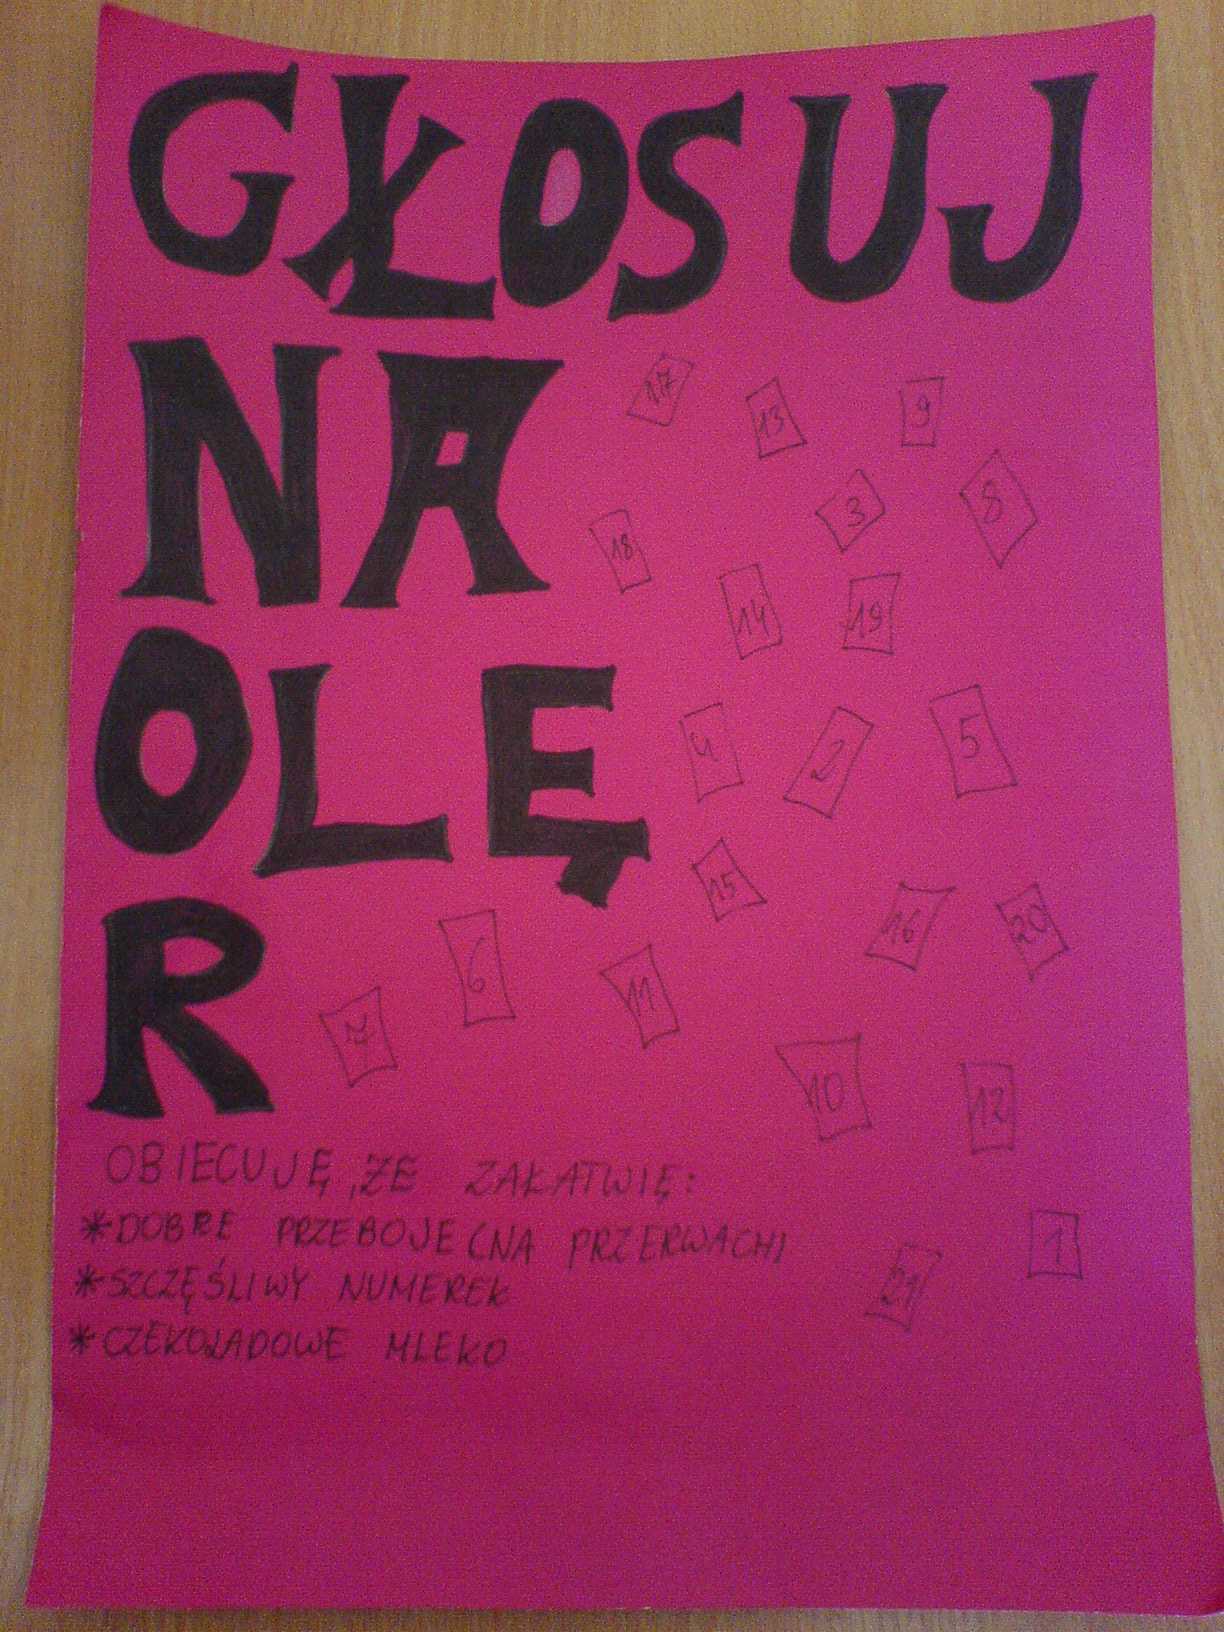 GŁOSUJ
NA
17
13
9
3
8
18
14
19
OLĘ
4
2
5
15
R
6
16
20
7
11
10
12
OBIECUJĘ, ŻE ZAŁATWIĘ:
*DOBRE PRZEBOJE (NA PRZERWACH)
1
*SZCZĘŚLIWY NUMEREK
21
*CZEKOLADOWE MLEKO